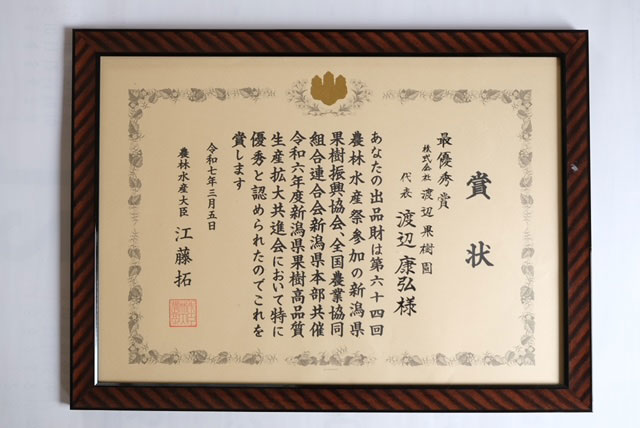 賞状
最優秀賞
株式会社 渡辺果樹園
代表 渡辺康弘様
あなたの出品財は第六十四回
農林水産祭参加の新潟県
果樹振興協会、全国農業協同
組合連合会新潟県本部共催
令和六年度新潟県果樹高品質
生産拡大共進会において特に
優秀と認められたのでこれを
賞します
令和七年三月五日
農林水産大臣 江藤拓